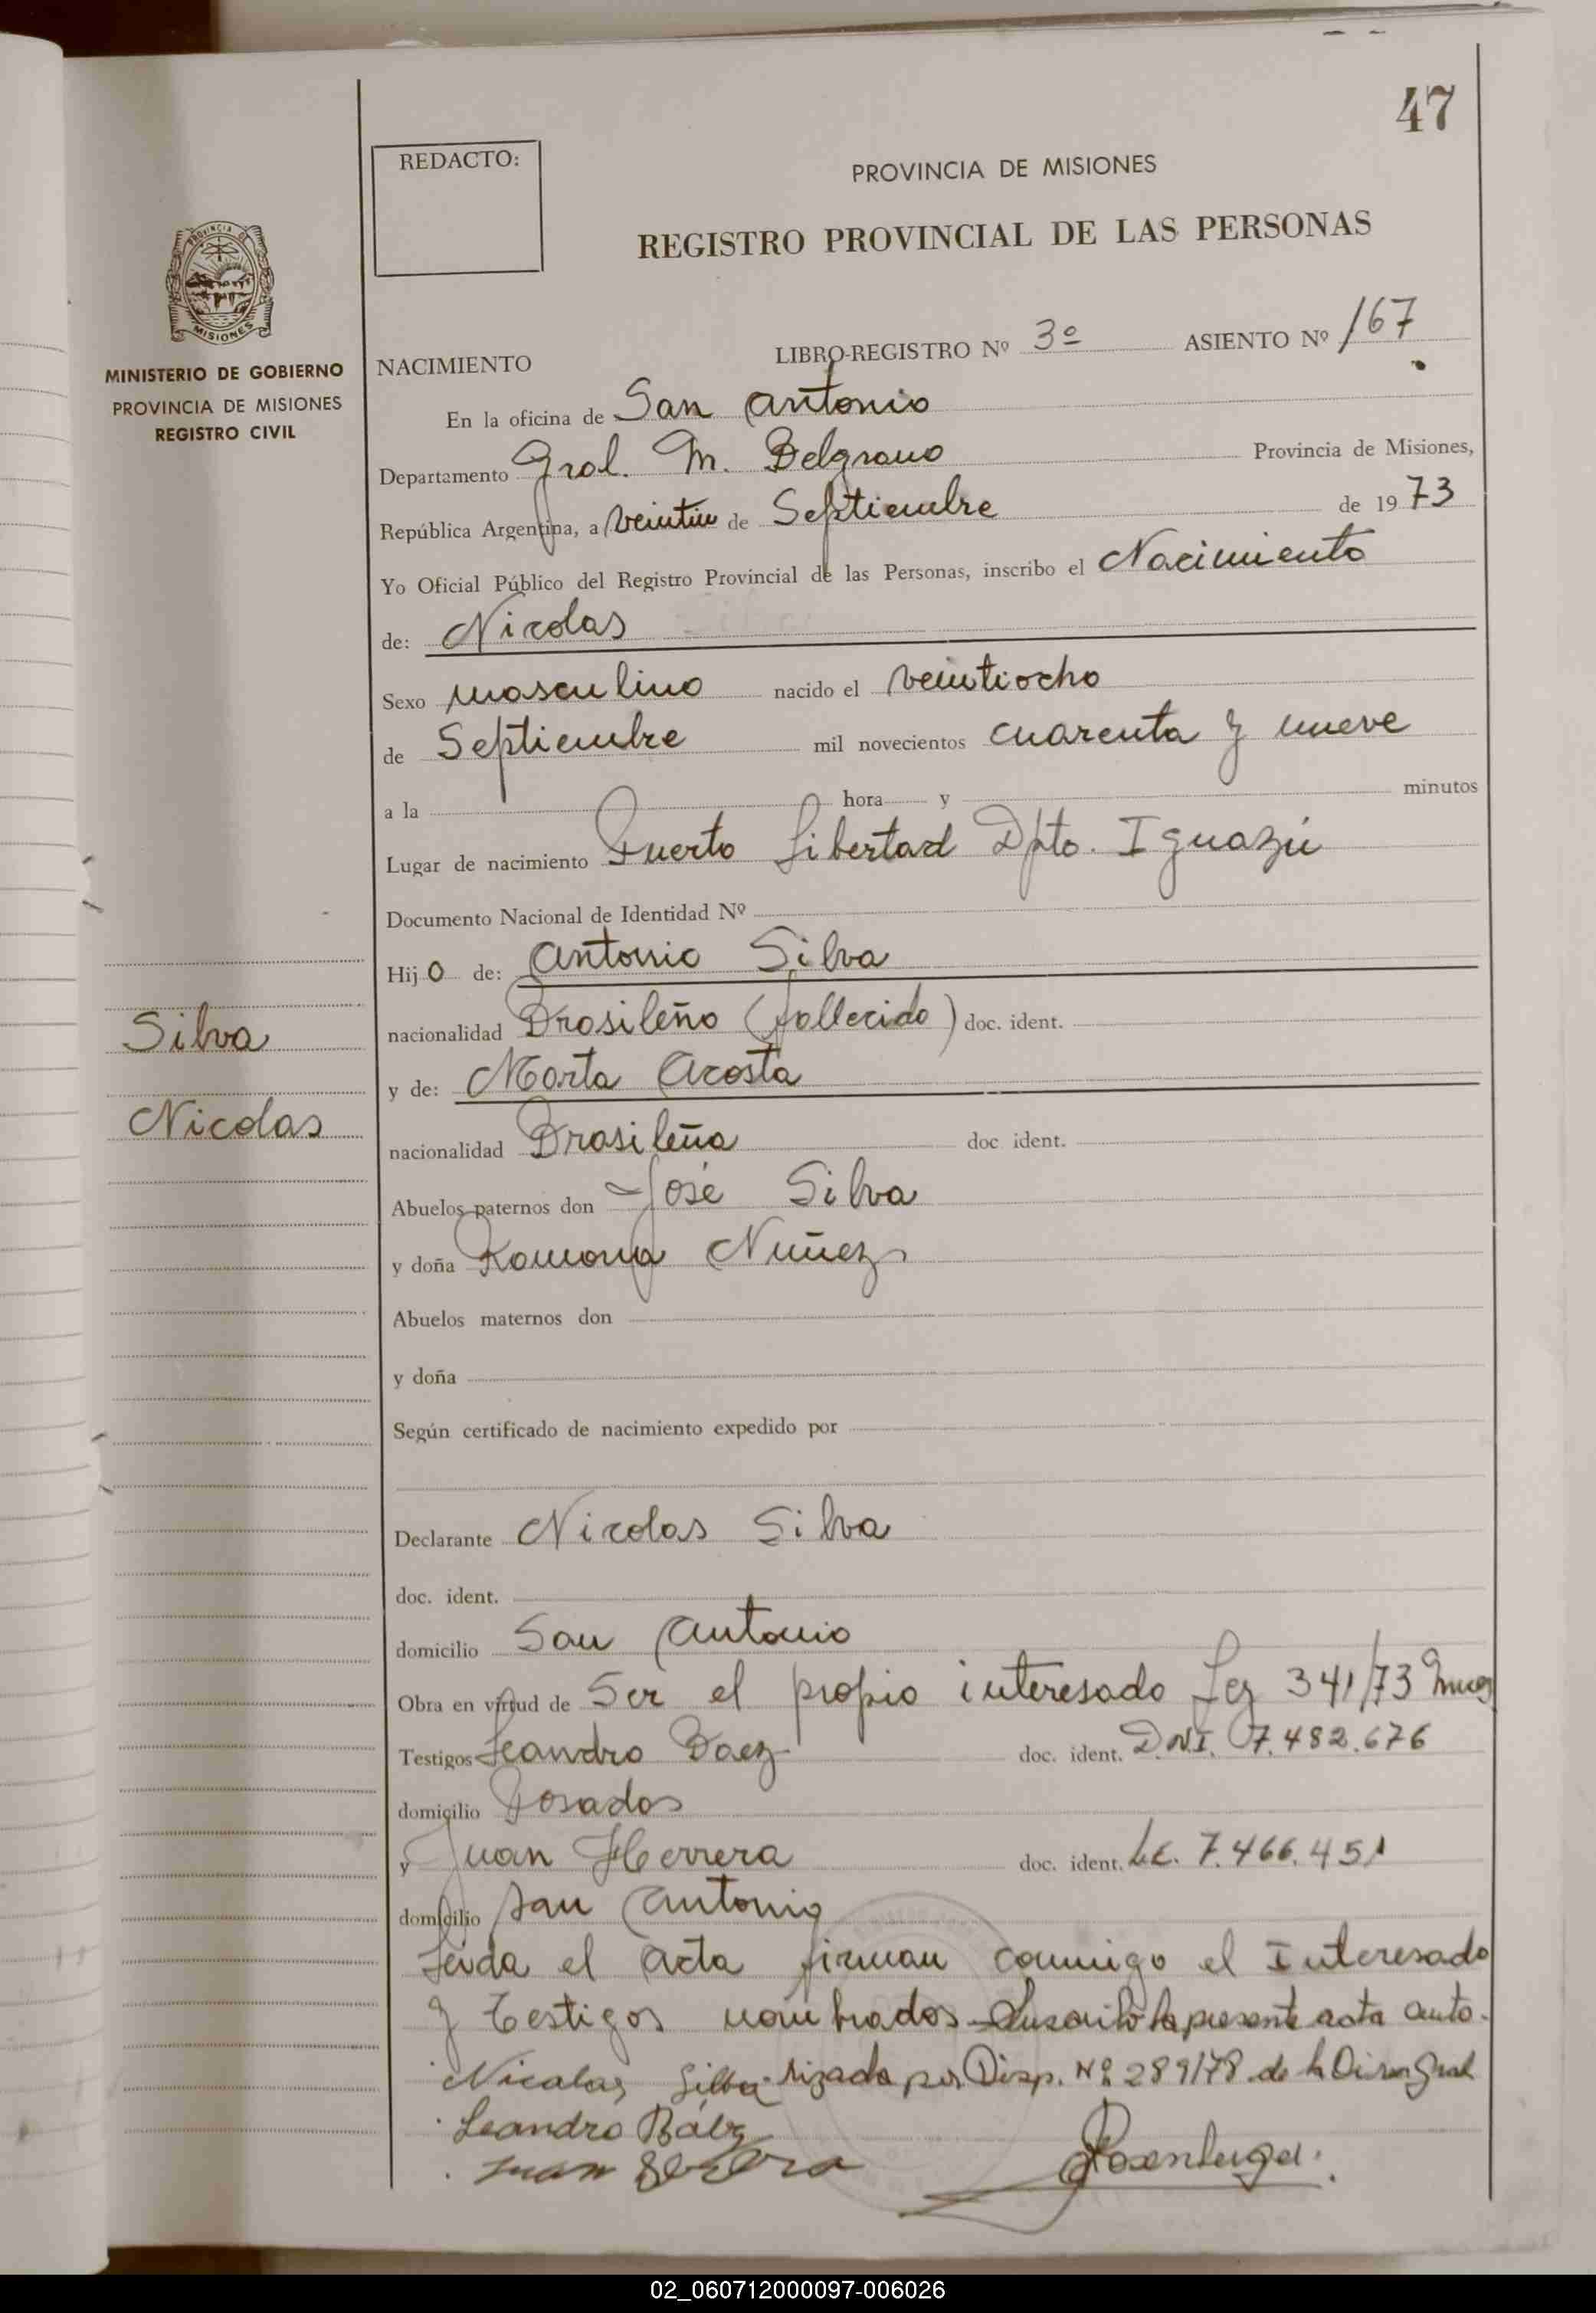 47
REDACTO:
PROVINCIA DE MISIONES
REGISTRO PROVINCIAL DE LAS PERSONAS
PROVINCIA DE
MISIONES
MINISTERIO DE GOBIERNO
PROVINCIA DE MISIONES
REGISTRO CIVIL
NACIMIENTO LIBRO-REGISTRO Nº 3º ASIENTO Nº 167
En la oficina de San Antonio
Departamento Gral. M. Belgrano Provincia de Misiones,
República Argentina, a veintiun de Septiembre de 1973
Yo Oficial Público del Registro Provincial de las Personas, inscribo el Nacimiento
de: Nicolas
Sexo masculino nacido el veintiocho
de Septiembre mil novecientos cuarenta y nueve
a la hora y minutos
Lugar de nacimiento Puerto Libertad Dpto. Iguazú
Documento Nacional de Identidad Nº
Hijo de: Antonio Silva
Silva
nacionalidad Brasileño (fallecido) doc. ident.
y de: Marta Acosta
Nicolas
nacionalidad Brasileña doc ident.
Abuelos paternos don José Silva
y doña Ramona Nuñez
Abuelos maternos don
y doña
Según certificado de nacimiento expedido por
Declarante Nicolas Silva
doc. ident.
domicilio San Antonio
Obra en virtud de Ser el propio interesado Ley 341/73
Testigos Leandro Baez doc. ident. D.N.I. 7.482.676
domicilio Posadas
y Juan Herrera doc. ident. L.E. 7.466.451
domicilio San Antonio
Leida el acta firman conmigo el Interesado
y testigos nombrados - Suscribo la presente acta auto-
Nicolas Silva rizada por Disp. Nº 289/78 de la Direc. Gral
Leandro Báez
Juan Herrera
02_060712000097-006026